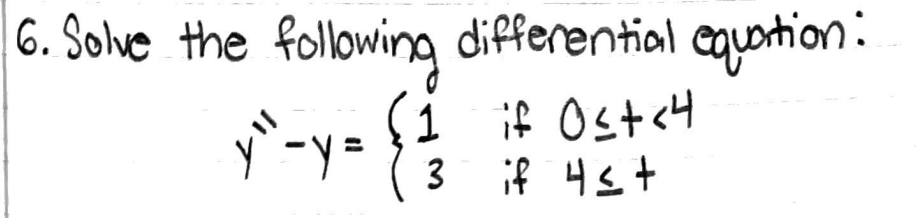 6. Solve the following differential equation:
y'' - y = { 1 if 0 ≤ t < 4
3 if 4 ≤ t